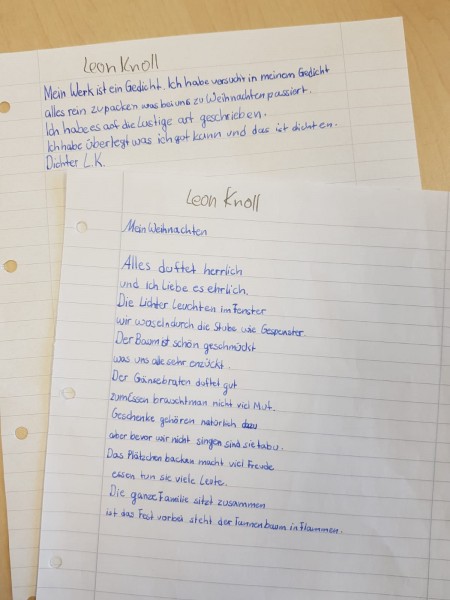 Leon Knoll
Mein Werk ist ein Gedicht. Ich habe versucht in meinem Gedicht
alles rein zu packen was bei uns zu Weihnachten passiert.
Ich habe es auf die Lustige art geschrieben.
Ich habe überlegt was ich gut kann und das ist dichten.
Dichter L.K.
Leon Knoll
Mein Weihnachten
Alles duftet herrlich
und ich Liebe es ehrlich.
Die Lichter Leuchten im Fenster
wir waseln durch die Stube wie Gespenster.
Der Baum ist schön geschmückt
was uns alle sehr enzückt.
Der Gänsebraten duftet gut
zum Essen braucht man nicht viel Mut.
Geschenke gehören natürlich dazu
aber bevor wir nicht singen sind sie tabu.
Das Plätzchen backen macht viel Freude
essen tun sie viele Leute.
Die ganze Familie sitzt zusammen
ist das Fest vorbei steht der Tannenbaum in Flammen.